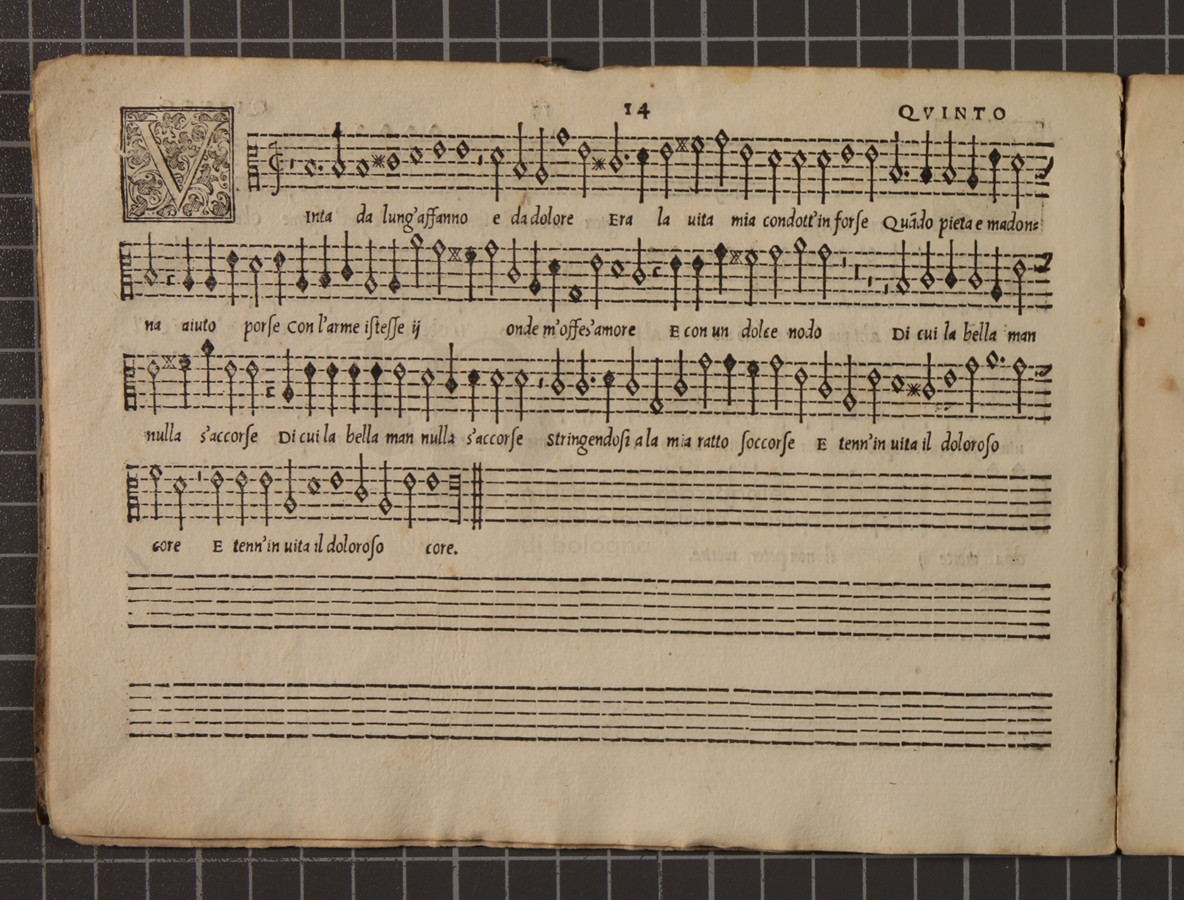 14 QVINTO
VInta da lung'affanno e da dolore Era la uita mia condott'in forse Quādo pieta e madon=
na aiuto porse Con l'arme istesse ij onde m'offes'amore E con un dolce nodo Di cui la bella man
nulla s'accorse Di cui la bella man nulla s'accorse Stringendosi a la mia ratto soccorse E tenn'in uita il doloroso
core E tenn'in uita il doloroso core.